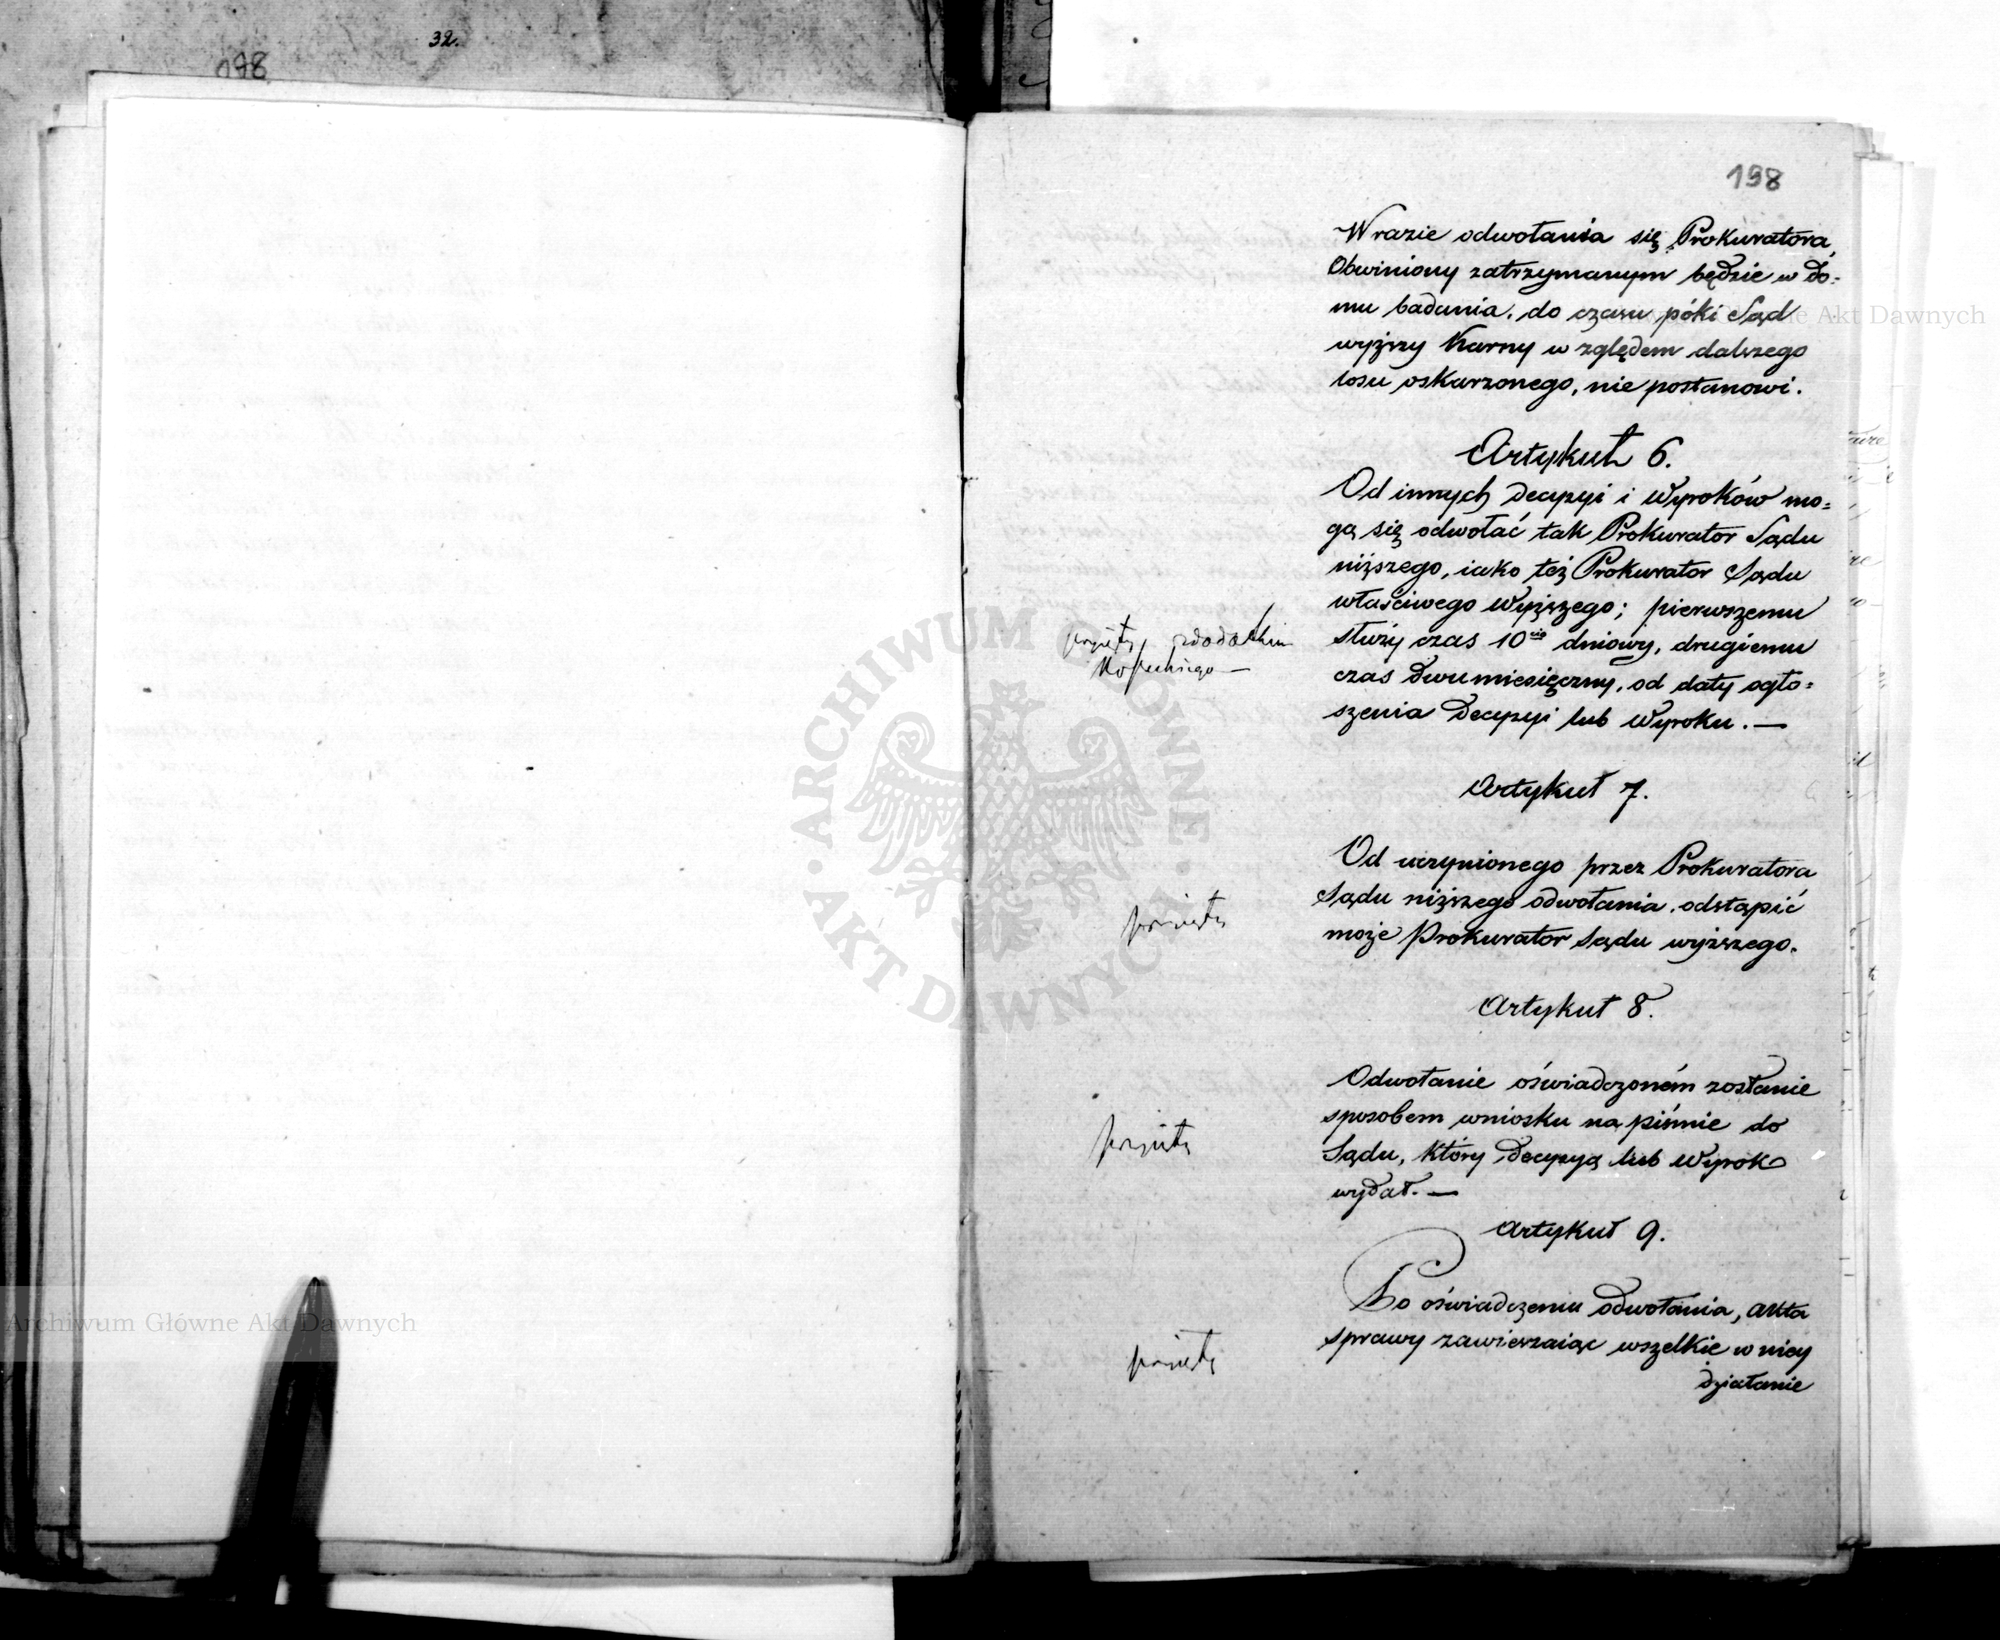 32.
198
198
W razie odwołania się Prokuratora,
Obwiniony zatrzymanym będzie w do=
mu badania, do czasu póki Sąd
wyższy Karny w zględem dalszego
losu oskarzonego, nie postanowi.
Artykuł 6.
Od innych Decyzyi i Wyroków mo=
gą się odwołać tak Prokurator Sądu
niższego, iako też Prokurator Sądu
właściwego Wyższego; pierwszemu
służy czas 10cio dniowy, drugiemu
czas dwumiesięczny, od daty ogło=
szenia Decyzyi lub Wyroku. —
przyięty z dodatkiem
Artykuł 7.
Od uczynionego przez Prokuratora
Sądu niższego odwołania, odstąpić
może Prokurator Sądu wyższego.
przyięty
Artykuł 8.
Odwołanie oświadczoném zostanie
sposobem wniosku na piśmie do
Sądu, który Decyzyą lub Wyrok
wydał. —
przyięty
Artykuł 9.
Po oświadczeniu odwołania, akta
sprawy zawierzaiąc wszelkie w niey
działanie
przyięty
ARCHIWUM GŁÓWNE AKT DAWNYCH
Archiwum Główne Akt Dawnych
Akt Dawnych